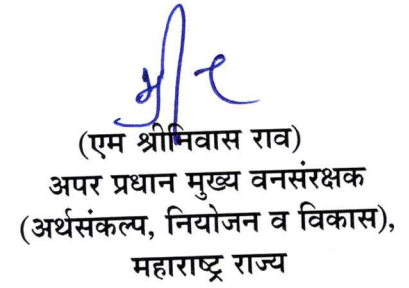 (एम श्रीनिवास राव)
अपर प्रधान मुख्य वनसंरक्षक
(अर्थसंकल्प, नियोजन व विकास),
महाराष्ट्र राज्य